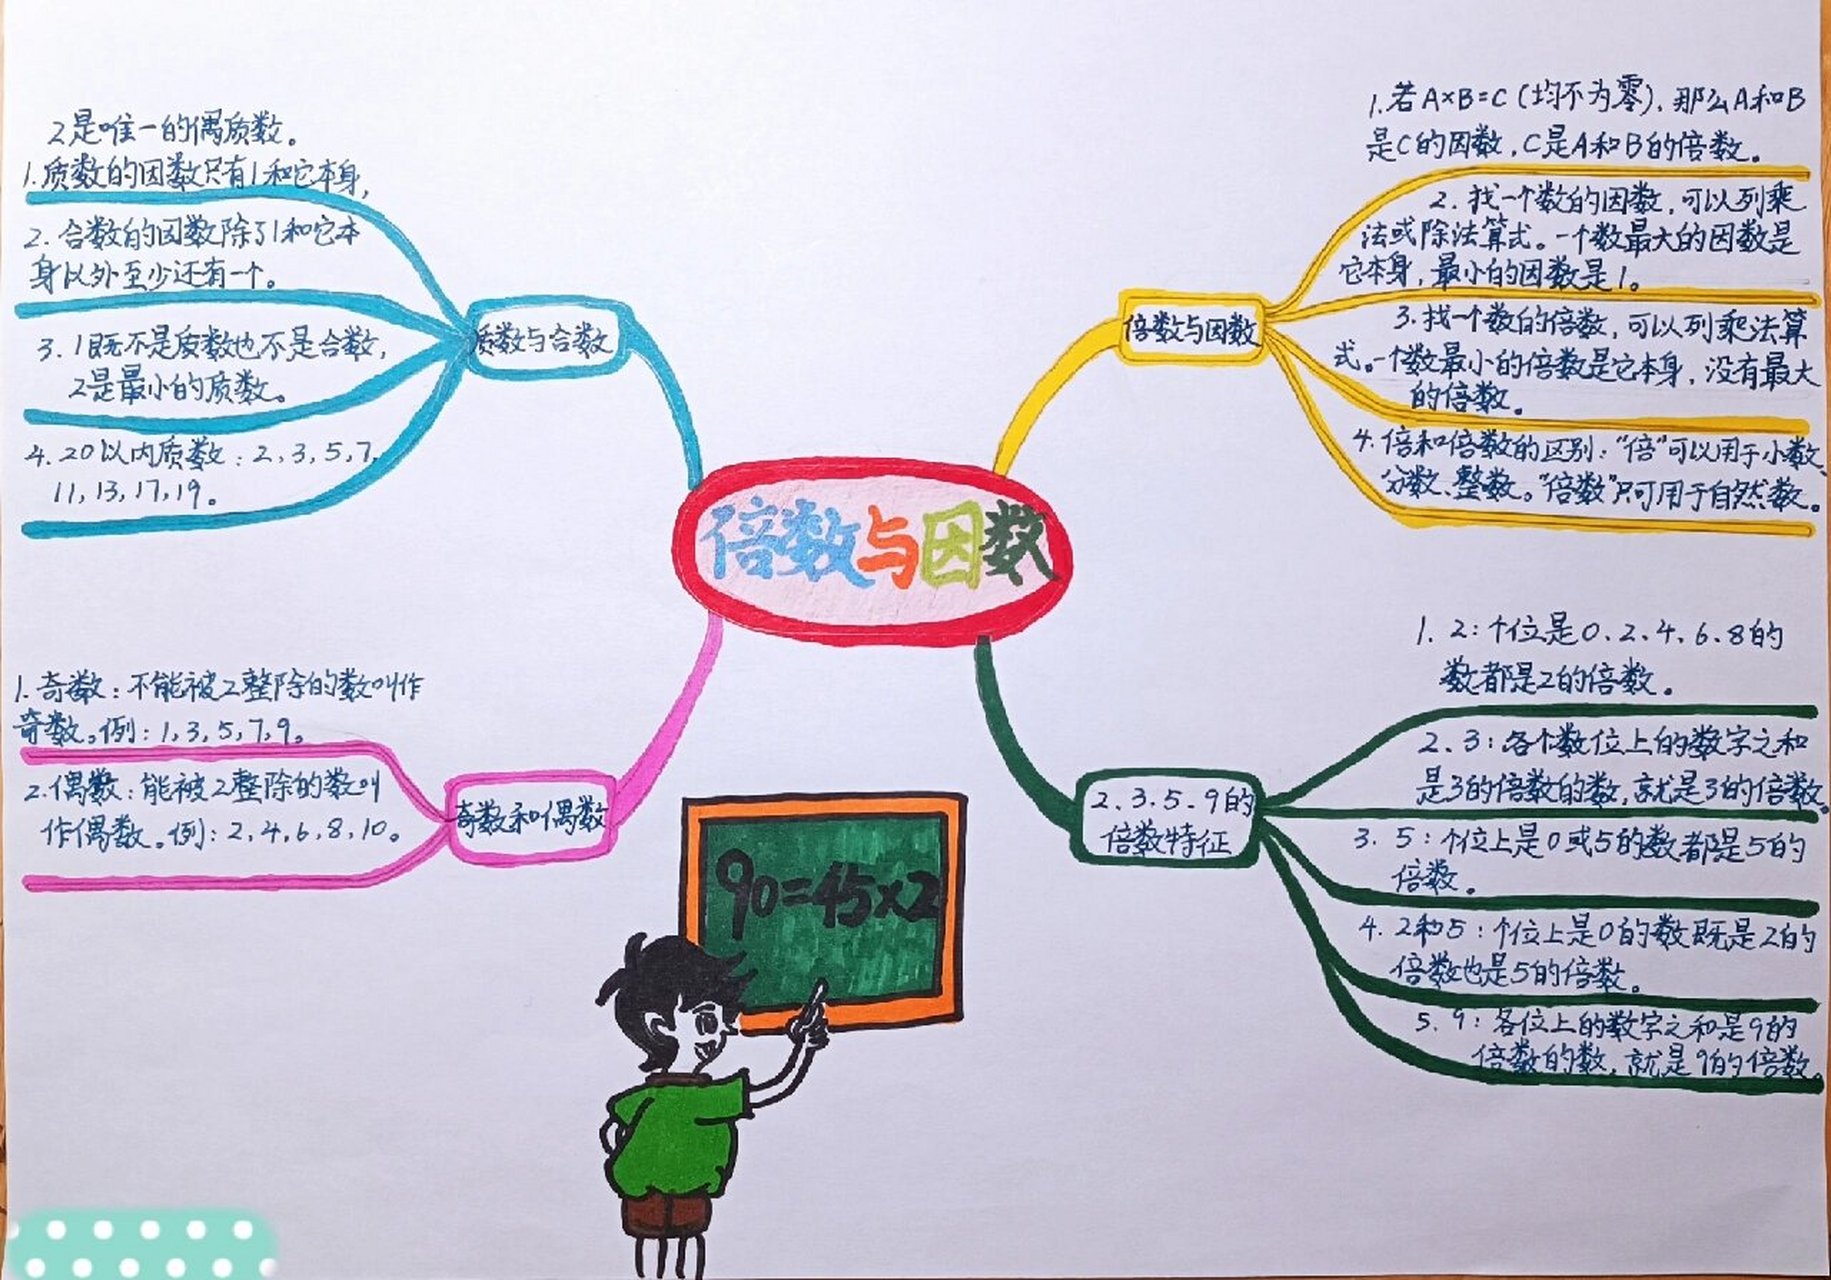 倍数与因数
2是唯一的偶质数。
1.质数的因数只有1和它本身,
2.合数的因数除了1和它本
身以外至少还有一个。
3.1既不是质数也不是合数,
2是最小的质数。
4.20以内质数:2,3,5,7,
11,13,17,19。
质数与合数
1.若A×B=C(均不为零),那么A和B
是C的因数,C是A和B的倍数。
2.找一个数的因数,可以列乘
法或除法算式。一个数最大的因数是
它本身,最小的因数是1。
3.找一个数的倍数,可以列乘法算
式。一个数最小的倍数是它本身,没有最大
的倍数。
4.倍和倍数的区别:“倍”可以用于小数、
分数、整数。“倍数”只可用于自然数。
倍数与因数
1.奇数:不能被2整除的数叫作
奇数。例:1,3,5,7,9。
2.偶数:能被2整除的数叫
作偶数。例:2,4,6,8,10。
奇数和偶数
1.2:个位是0、2、4、6、8的
数都是2的倍数。
2.3:各个数位上的数字之和
是3的倍数的数,就是3的倍数。
3.5:个位上是0或5的数都是5的
倍数。
4.2和5:个位上是0的数既是2的
倍数也是5的倍数。
5.9:各位上的数字之和是9的
倍数的数,就是9的倍数。
2.3.5.9的
倍数特征
90=45×2